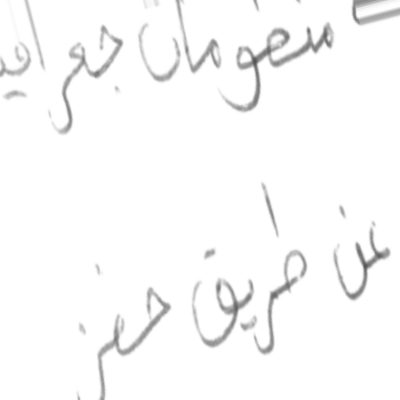 منظومات جغرافي
عن طريق حفز